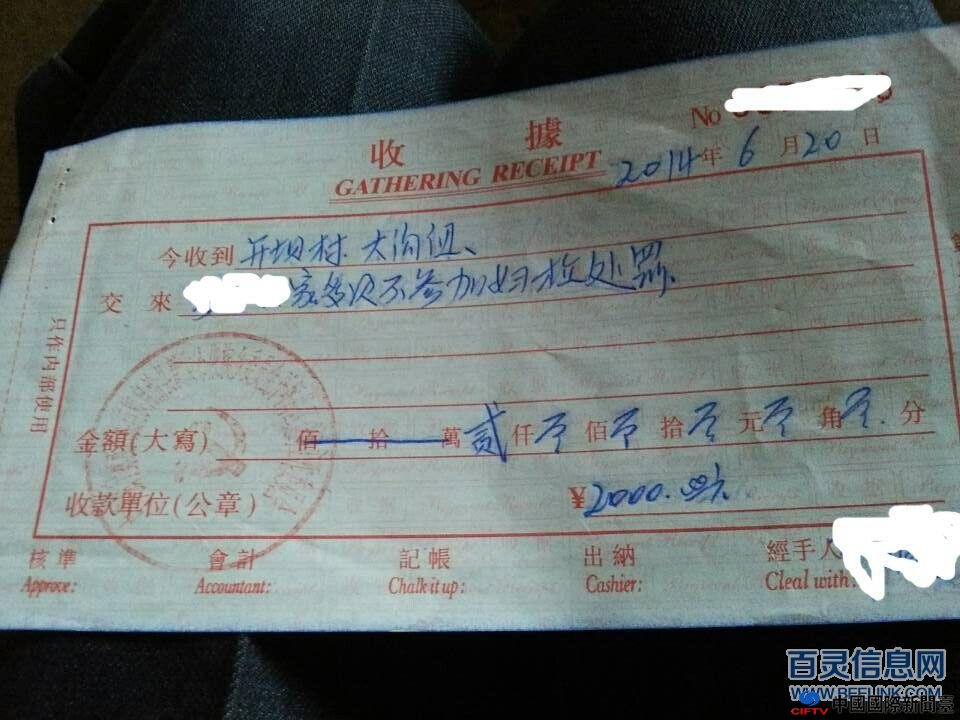 No
收據
GATHERING RECEIPT
2014年6月20日
今收到 开坝村大沟组、
交來 家多次不参加妇检处罚.
只作内部使用
金額(大寫) 佰拾萬贰仟零佰零拾零元零角零分
收款單位(公章) ¥2000.
核準 會計 記帳 出納 經手人
Approve: Accountant: Chalk it up: Cashier: Cleal with:
百灵信息网
WWW.BEELINK.COM
CIFTV 中國國際新聞臺